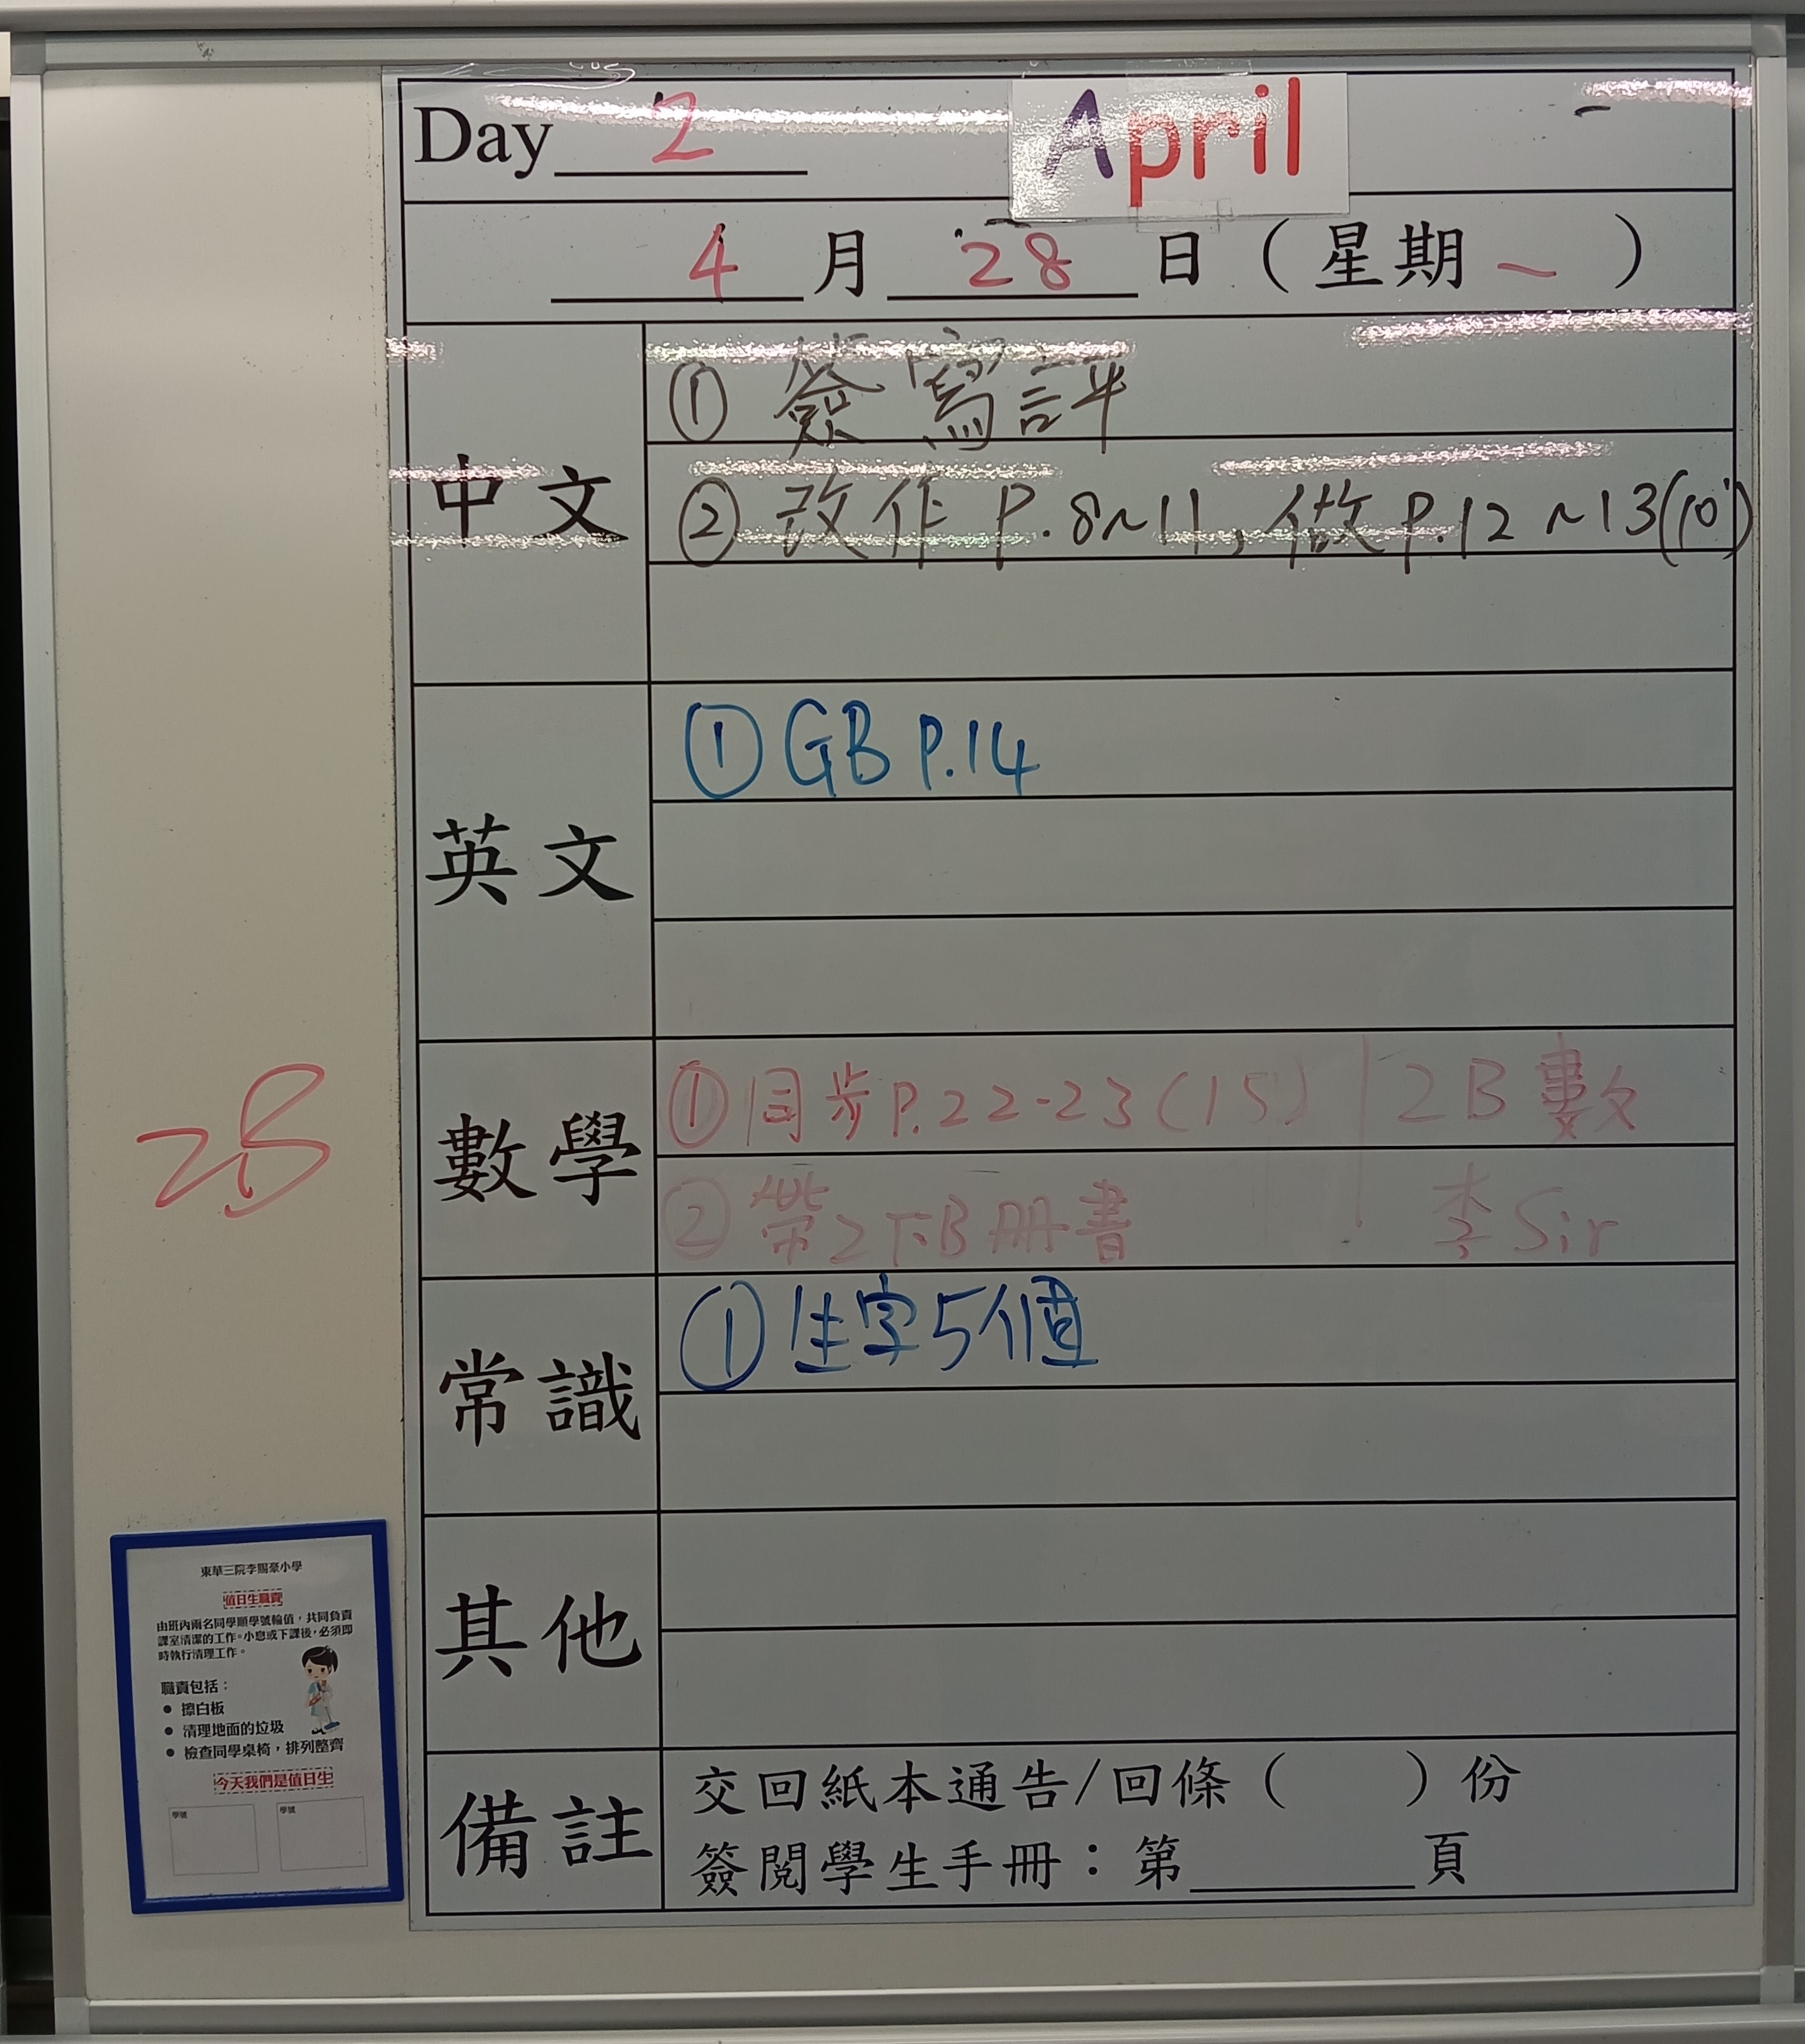 Day 2 April
4 月 28 日 ( 星期 一 )
中文
① 簽寫評
② 改作 P.8~11, 做 P.12~13(10')
英文
① GB P.14
數學
① 同步P.22-23(15) 2B 數
② 帶2下B冊書 李 Sir
28
常識
① 生字5個
其他
備註
交回紙本通告/回條 ( ) 份
簽閱學生手冊：第 頁
東華三院李賜豪小學
值日生職責
由班內兩名同學順學號輪值，共同負責
課室清潔的工作。小息或下課後，必須即
時執行清理工作。
職責包括：
● 擦白板
● 清理地面的垃圾
● 檢查同學桌椅，排列整齊
今天我們是值日生
學號 學號